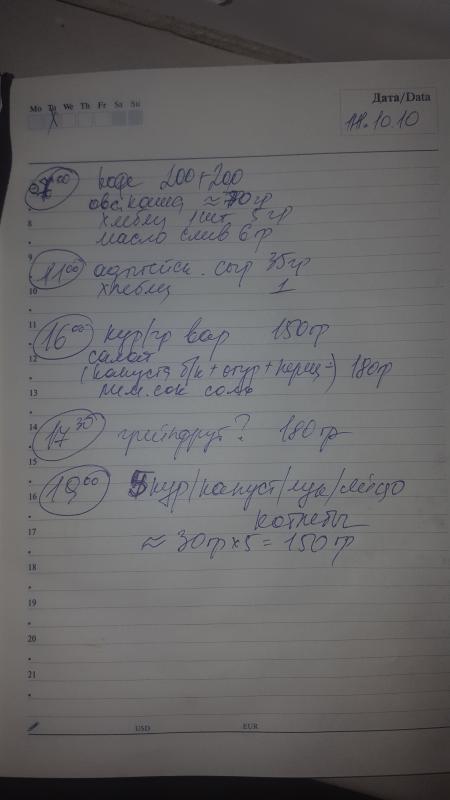 Mo Tu We Th Fr Sa Su
Дата/Data
10.10
7 00 кофе 200+200
овс. каша ≈ 70 гр
8
хлебец 1 шт 5 гр
масло слив 6 гр
9
11 00 адыгейск. сыр 35 гр
10
хлебец 1
11
16 00 кур/гр вар 150 гр
12
салат
(капуста б/к + огур + перец) 180 гр
13
лим. сок соль
14
17 30 грейпфрут? 180 гр
15
19 00 5 кур/капуст/лук/яйцо
16
котлеты
17
≈ 30 гр x 5 = 150 гр
18
19
20
21
USD EUR